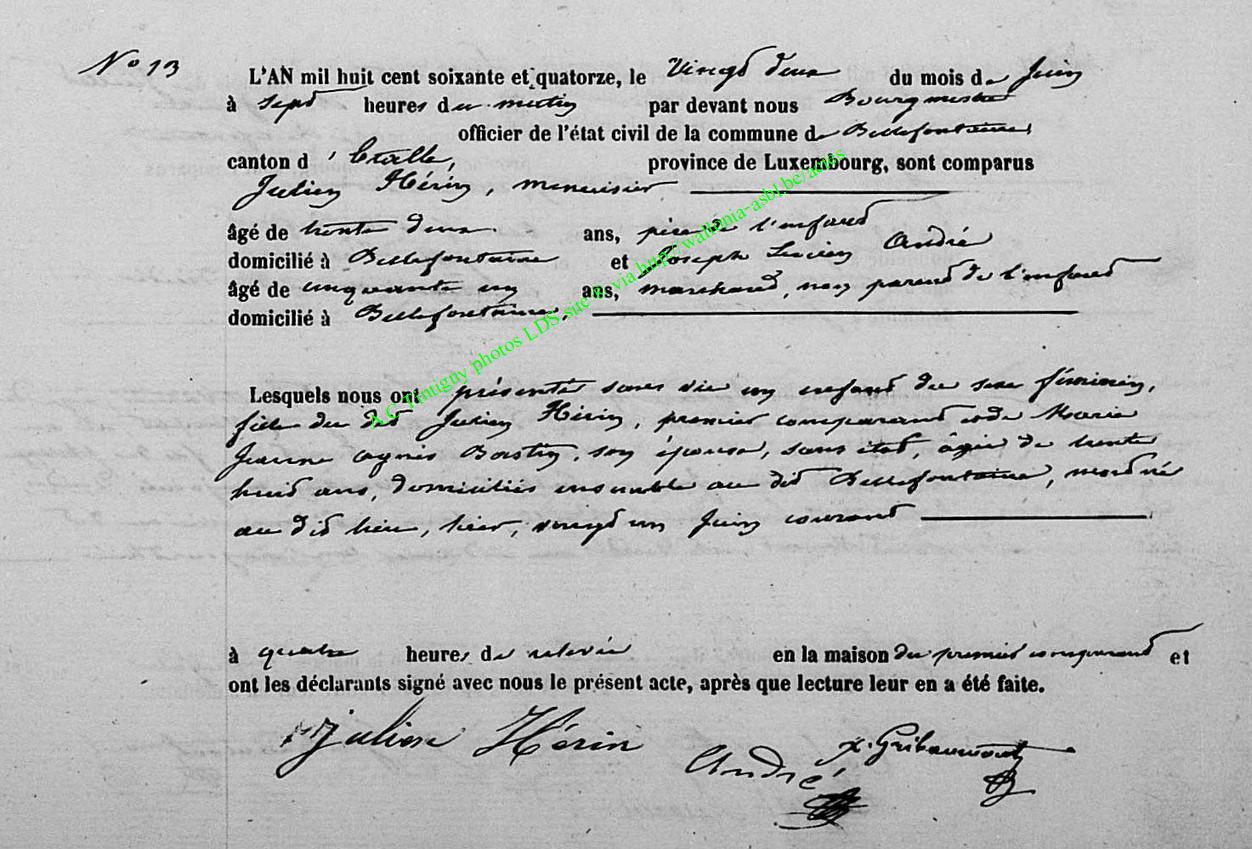 N° 13
L'AN mil huit cent soixante et quatorze, le Vingt deux du mois de Juin
à sept heures du matin par devant nous Bourgmestre
officier de l'état civil de la commune de Bellefontaine,
canton d'Etalle, province de Luxembourg, sont comparus
Julien Hérin, menuisier
âgé de trente deux ans, père de l'enfant
domicilié à Bellefontaine et Joseph Lucien André
âgé de cinquante un ans, marchand, non parent de l'enfant
domicilié à Bellefontaine,
Lesquels nous ont présenté sans vie un enfant du sexe féminin,
fille du dit Julien Hérin, premier comparant et de Marie
Jeanne Agnès Bastin, son épouse, sans état, âgée de trente
huit ans, domiciliés ensemble au dit Bellefontaine, mort né
au dit lieu, hier, vingt un Juin courant
à quatre heures de relevée en la maison du premier comparant et
ont les déclarants signé avec nous le présent acte, après que lecture leur en a été faite.
Julien Hérin
André
X. Gribaumont
A.C. Tintigny photos LDS site © via http://wallonia-asbl.be/actes